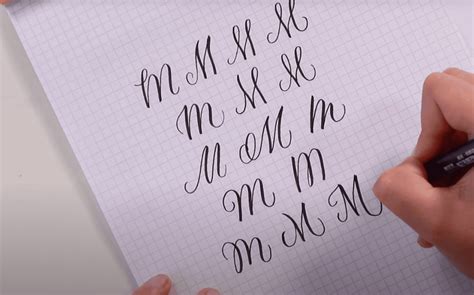 M M M M
M M M
M M M
M M
M M M